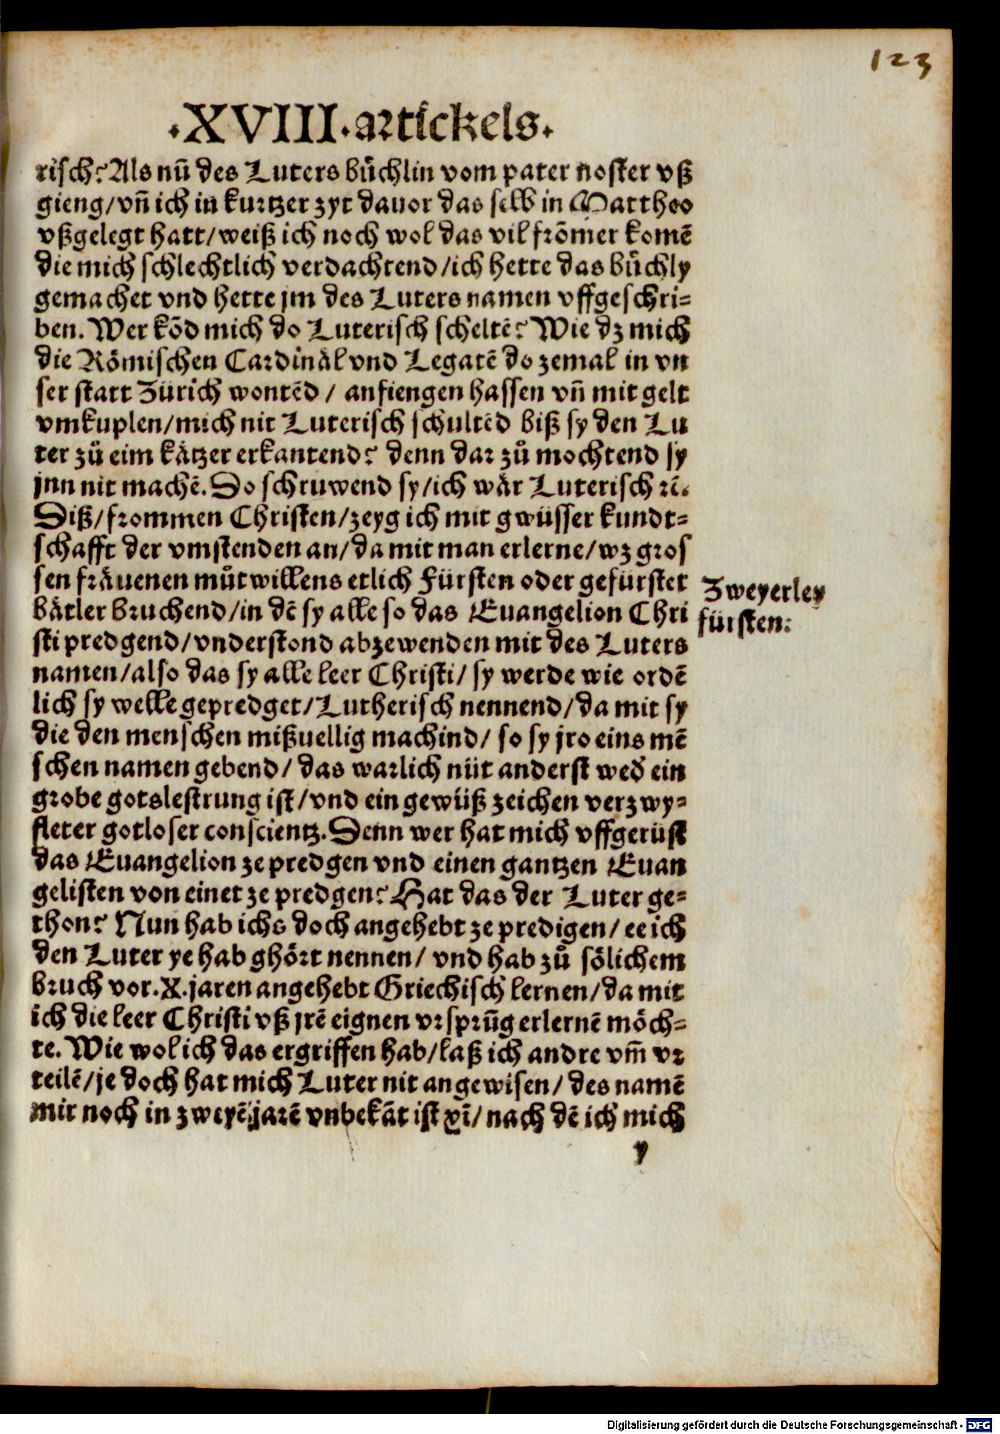 123
.XVIII.artickels.
risch? Als nū des Luters bůchlin vom pater noster vß
gieng/vn̄ ich in kurtzer zyt dauor das selb in Mattheo
vßgelegt hatt/weiß ich noch wol das vil frōmer komē
die mich schlechtlich verdachtend/ich hette das bůchly
gemachet vnd hette jm des Luters namen vffgeschri-
ben. Wer kōd mich do Luterisch scheltē? Wie dz mich
die Römischen Cardinäl vnd Legatē do zemal in vn
ser statt Zürich wontēd / anfiengen hassen vn̄ mit gelt
vmkuplen/mich nit Luterisch schultēd biß sy den Lu
ter zů eim kätzer erkantend? denn dar zů mochtend sy
jnn nit machē. Do schruwend sy/ich wär Luterisch rē.
Diß/frommen Christen/zeyg ich mit gwüsser kundt-
schafft der vmstenden an/da mit man erlerne/wz gros
sen fräuenen můtwillens etlich Fürsten oder gefürstet
bätler bruchend/in dē sy alle so das Euangelion Chri
sti predgend/vnderstond abzewenden mit des Luters
namen/also das sy alle leer Christi/sy werde wie ordē
lich sy welle gepredget/Lutherisch nennend/da mit sy
die den menschen mißuellig machind/ so sy jro eins mē
schen namen gebend/ das warlich nüt anderst wed̄ ein
grobe gotslestrung ist/vnd ein gewüß zeichen verzwy-
fleter gotloser conscientz. Denn wer hat mich vffgerüst
das Euangelion ze predgen vnd einen gantzen Euan
gelisten von einet ze predgen? Hat das der Luter ge-
thon? Nun hab ichs doch angehebt ze predigen/ ee ich
den Luter ye hab ghört nennen/ vnd hab zů sölichem
bruch vor.X.jaren angehebt Griechisch lernen/da mit
ich die leer Christi vß jrē eignen vrsprūg erlernē möch-
te. Wie wol ich das ergriffen hab/laß ich andre vm̄ vr
teilē/je doch hat mich Luter nit angewisen/des namē
mir noch in zweyē jarē vnbekāt ist gsī/nach dē ich mich
y
Zweyerley
fürsten.
Digitalisierung gefördert durch die Deutsche Forschungsgemeinschaft - DFG